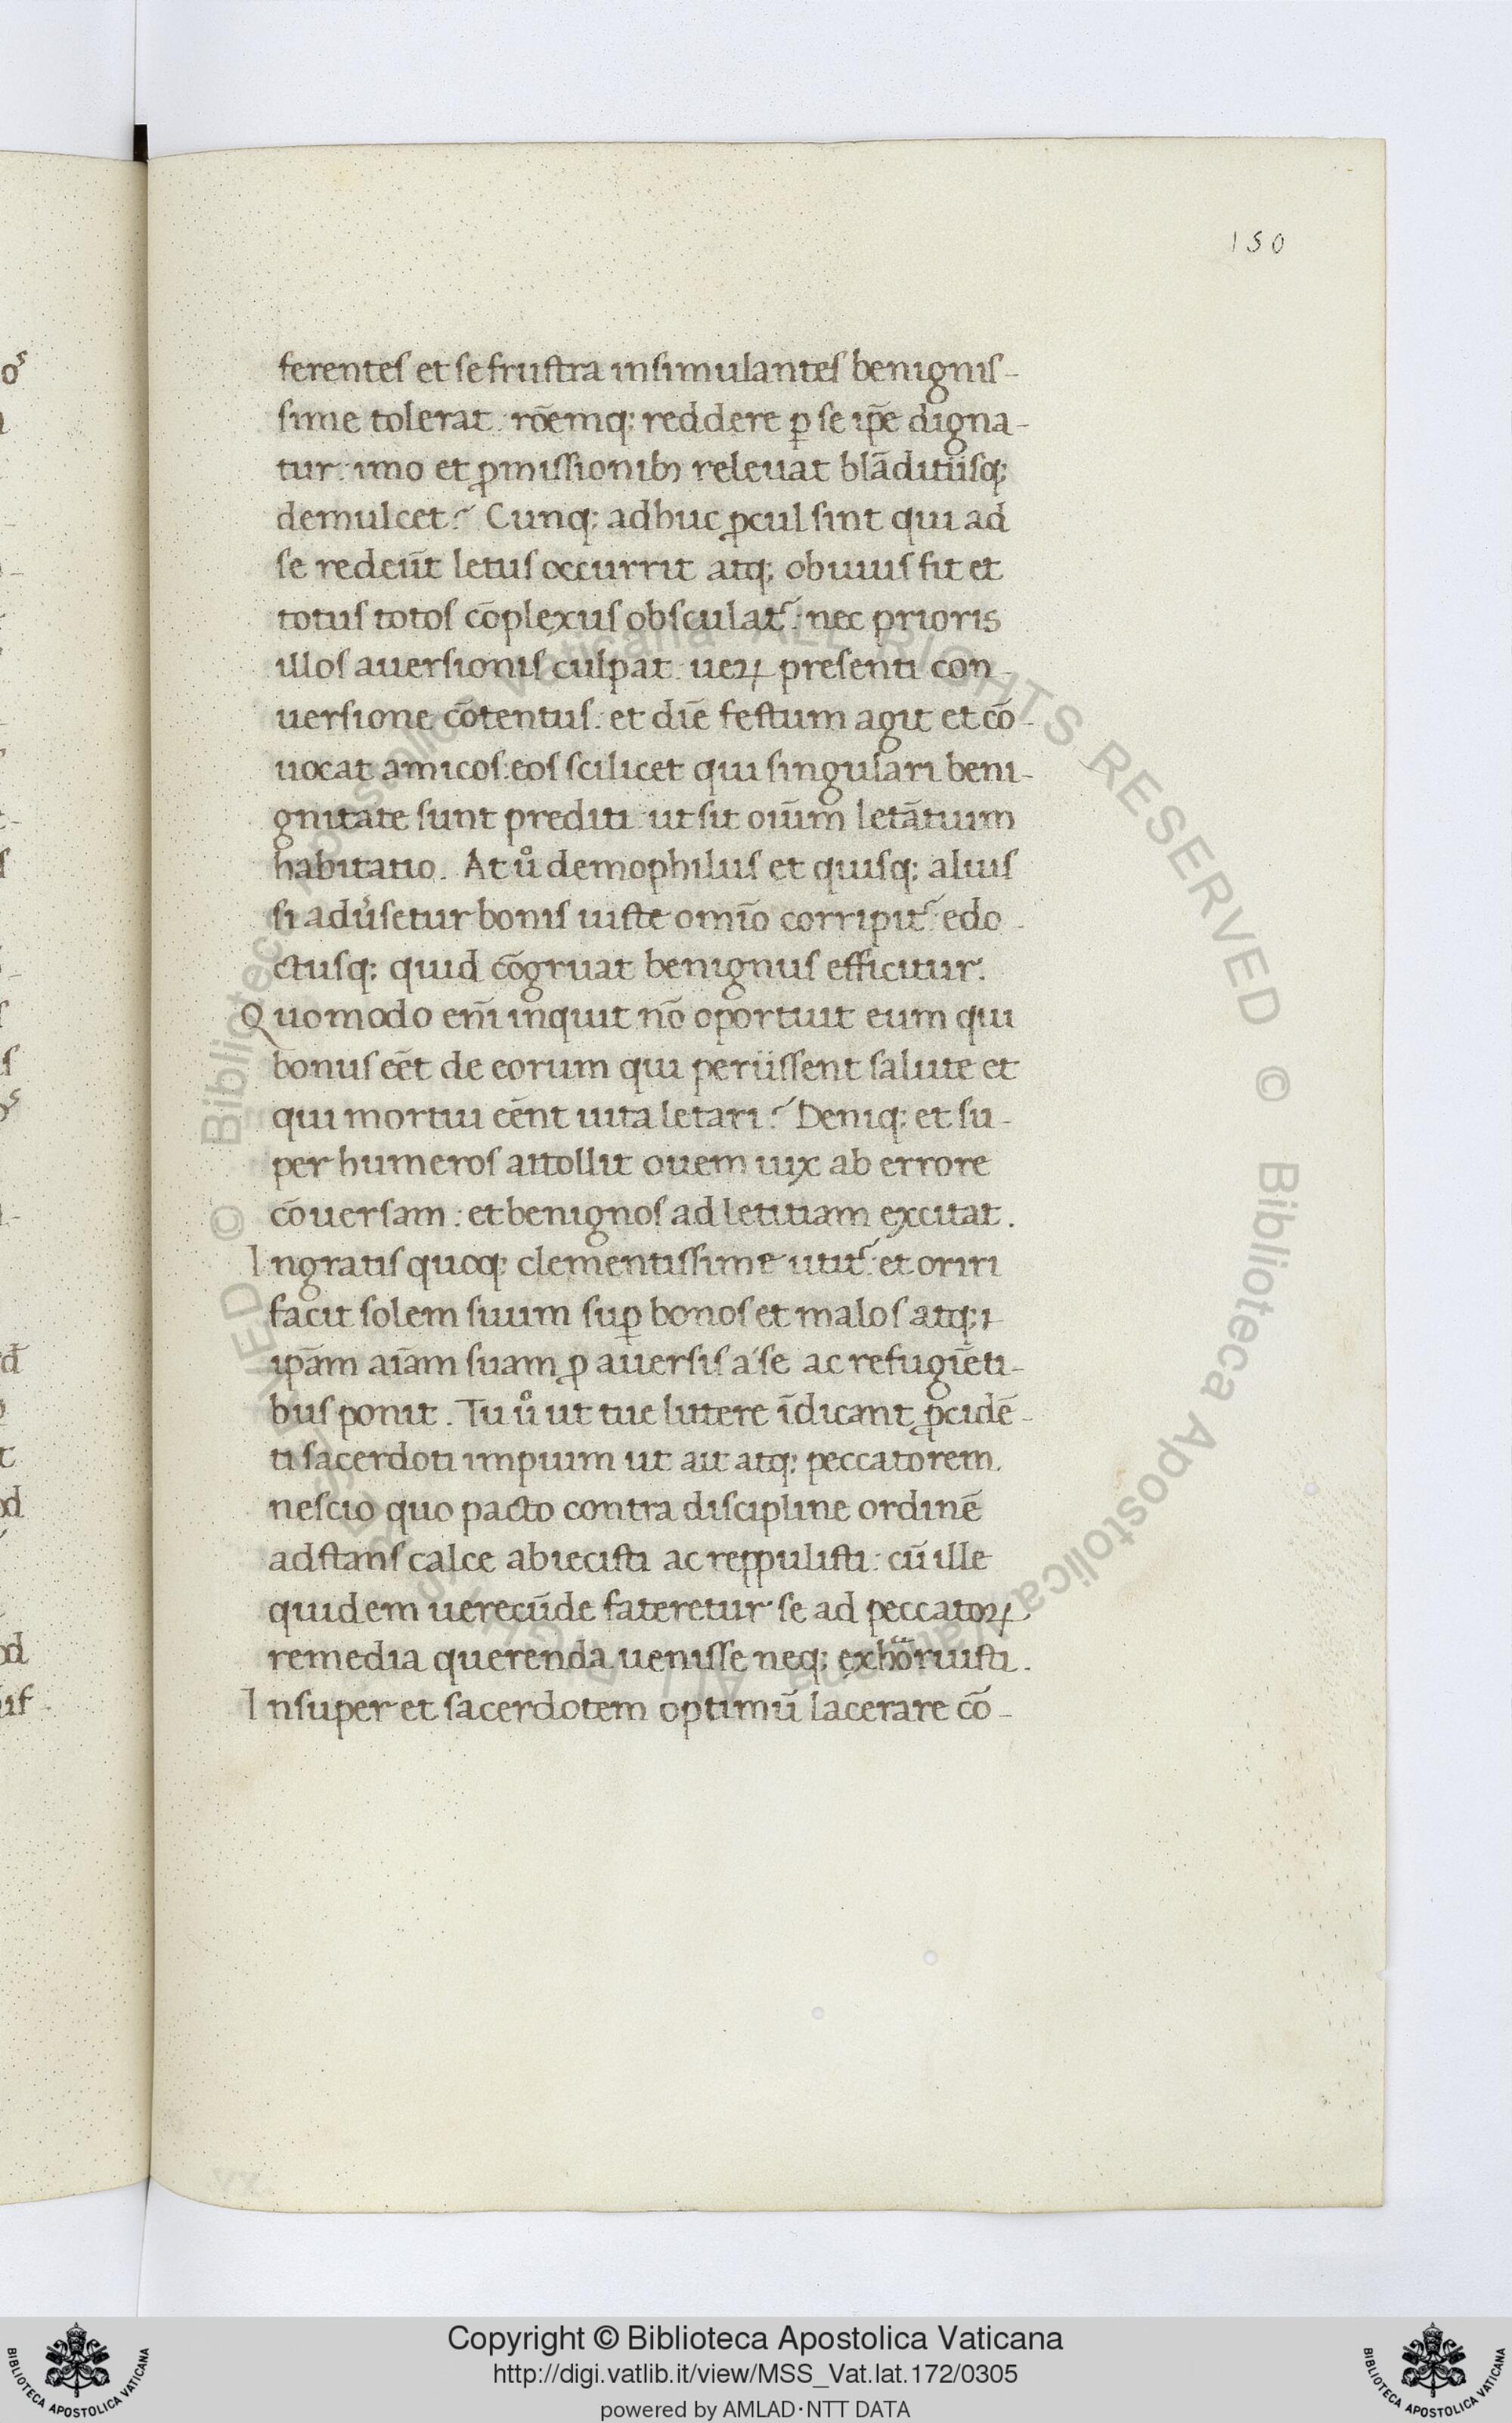 150
ferentes et se frustra insimulantes benignis-
sime tolerat. rōemq; reddere ꝑ se ip̄e digna-
tur: imo et ꝓmissionibꝫ releuat blāditiisq;
demulcet? Cunq; adhuc ꝓcul sint qui ad
se redeūt letus occurrit atq; obuius fit et
totus totos cōplexus obsculat᷑: nec prioris
illos auersionis culpat: ueꝝ presenti con-
uersione cōtentus: et diē festum agit et cō-
uocat amicos: eos scilicet qui singulari beni-
gnitate sunt prediti: ut sit oiūm letātium
habitatio. At uͦ demophilus et quisq; alius
si adu̓setur bonis iuste omīo corripit᷑: edo-
ctusq; quid cōgruat benignus efficitur.
Quomodo em̄ inquit nō oportuit eum qui
bonus eēt de eorum qui periissent salute et
qui mortui eēnt uita letari? Deniq; et su-
per humeros attollit ouem uix ab errore
cōuersam: et benignos ad letitiam excitat.
Ingratis quoq; clementissime utit᷑: et oriri
facit solem suum suꝑ bonos et malos atq; ⁊
ip̄am aīam suam ꝓ auersis a se ac refugiēti-
bus ponit. Tu uͦ ut tue littere īdicant ꝓcidē-
ti sacerdoti impium ut ait atq; peccatorem
nescio quo pacto contra discipline ordinē
adstans calce abiecisti ac reppulisti: cū ille
quidem uerecūde fateretur se ad peccatoꝝ
remedia querenda uenisse neq; exhorruisti.
Insuper et sacerdotem optimū lacerare cō-
Copyright © Biblioteca Apostolica Vaticana
http://digi.vatlib.it/view/MSS_Vat.lat.172/0305
powered by AMLAD·NTT DATA
BIBLIOTECA APOSTOLICA VATICANA
BIBLIOTECA APOSTOLICA VATICANA